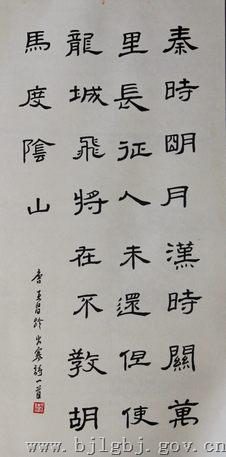 秦時明月漢時關萬
里長征人未還但使
龍城飛將在不教胡
馬度陰山
唐王昌齡出塞詩一首
www.bjlgbj.gov.cn